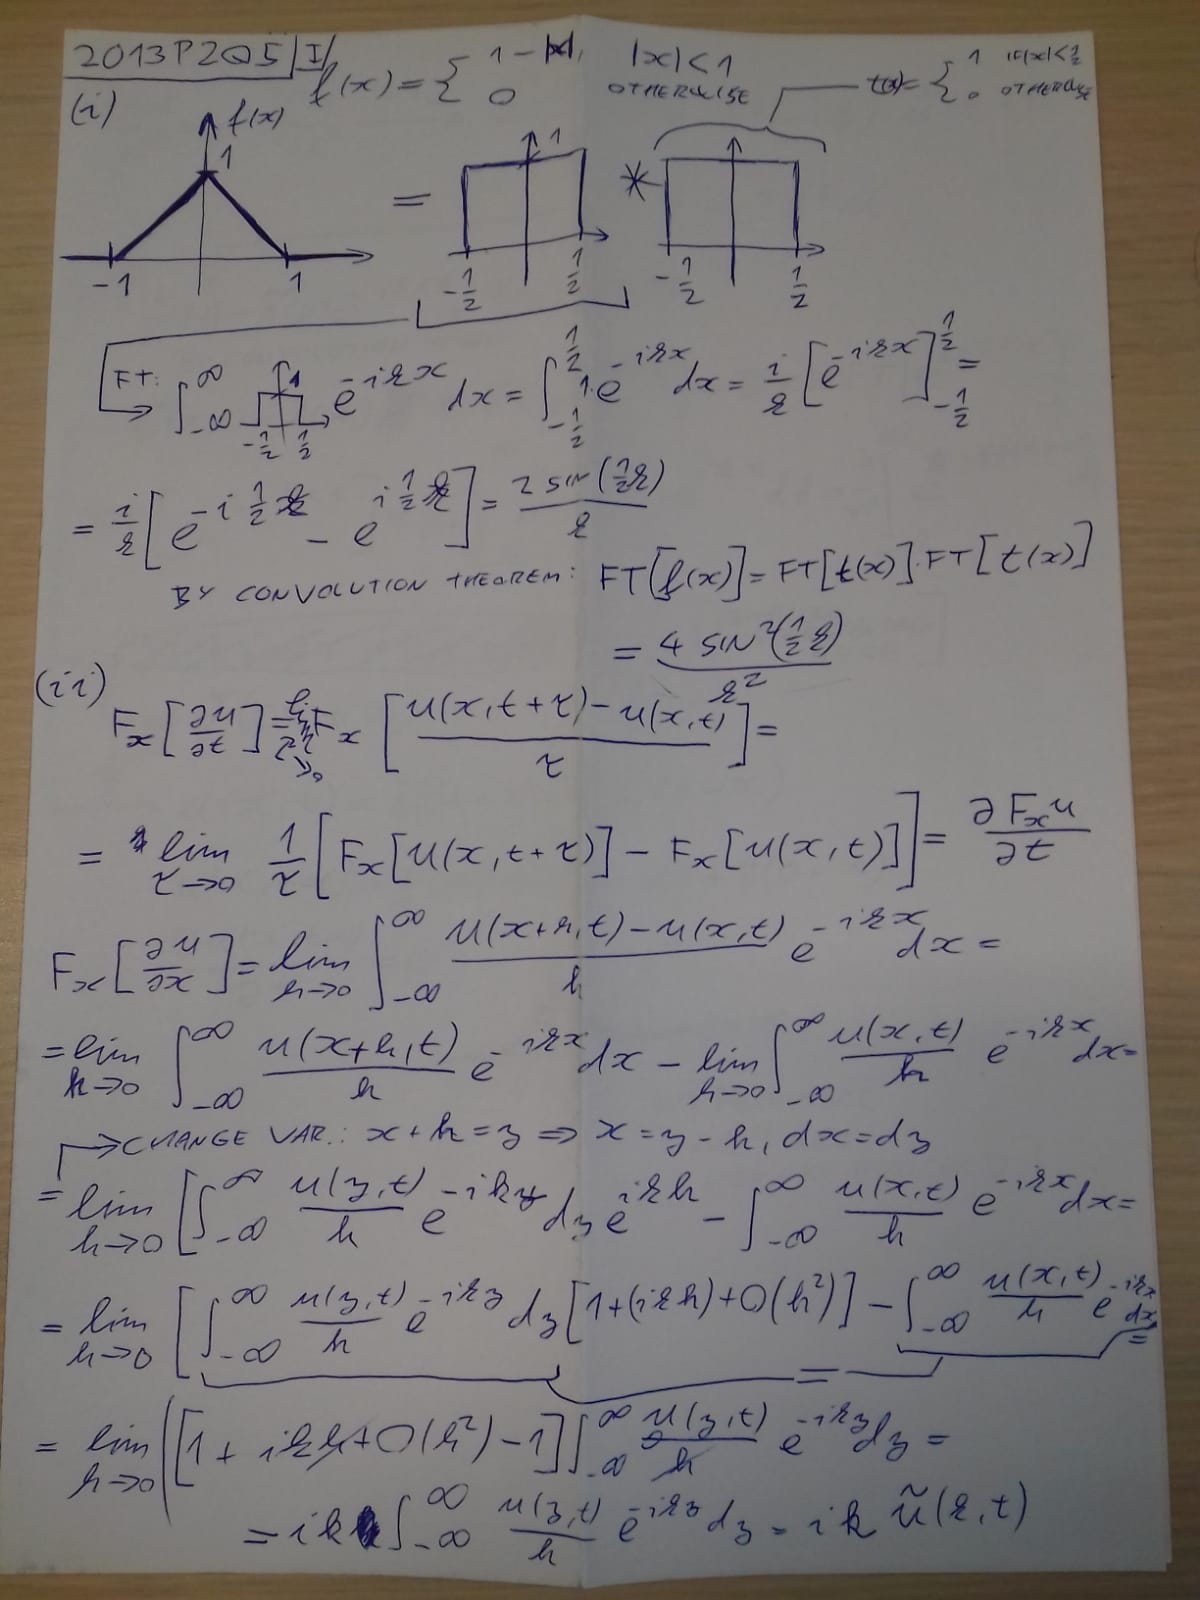 2013P2Q5 | I/
(i) f(x) = { 1 - |x|, |x| < 1
0 OTHERWISE
t(x) = { 1 IF |x| < 1/2
0 OTHERWISE
f(x)
1
-1 1
=
1
-1/2 1/2
*
-1/2 1/2
FT: ∫_{-∞}^{∞} 1 -1/2 1/2 e^{-ikx} dx = ∫_{-1/2}^{1/2} 1·e^{-ikx} dx = i/k [e^{-ikx}]_{-1/2}^{1/2} =
= i/k [e^{-i 1/2 k} - e^{i 1/2 k}] = 2 sin(1/2 k) / k
BY CONVOLUTION THEOREM: FT[f(x)] = FT[t(x)]·FT[t(x)]
= 4 SIN²(1/2 k) / k²
(ii)
F_x[∂u/∂t] = lim_{τ→0} F_x [(u(x, t+τ) - u(x, t)) / τ] =
= lim_{τ→0} 1/τ [F_x[u(x, t+τ)] - F_x[u(x, t)]] = ∂F_x u / ∂t
F_x[∂u/∂x] = lim_{h→0} ∫_{-∞}^{∞} (u(x+h, t) - u(x, t)) / h e^{-ikx} dx =
= lim_{h→0} ∫_{-∞}^{∞} u(x+h, t)/h e^{-ikx} dx - lim_{h→0} ∫_{-∞}^{∞} u(x, t)/h e^{-ikx} dx =
→ CHANGE VAR.: x + h = z ⇒ x = z - h, dx = dz
= lim_{h→0} [∫_{-∞}^{∞} u(z, t)/h e^{-ikz} dz e^{ikh} - ∫_{-∞}^{∞} u(x, t)/h e^{-ikx} dx =
= lim_{h→0} [∫_{-∞}^{∞} u(z, t)/h e^{-ikz} dz [1 + (ikh) + O(h²)] - ∫_{-∞}^{∞} u(x, t)/h e^{-ikx} dx =
=
= lim_{h→0} ([1 + ikh + O(h²) - 1] ∫_{-∞}^{∞} u(z, t)/h e^{-ikz} dz =
= ik ∫_{-∞}^{∞} u(z, t)/h e^{-ikz} dz = ik ũ(k, t)